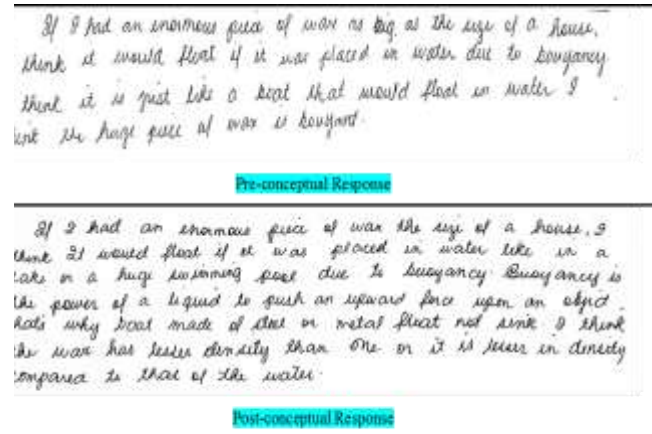 If I had an enormous piece of wax as big as the size of a house,
think it would float if it was placed in water due to bouyancy
think it is just like a boat that would float in water I
the huge piece of wax is bouyant.
Pre-conceptual Response
If I had an enormous piece of wax the size of a house, I
think It would float if it was placed in water like in a
lake or a huge swimming pool due to buoyancy. Buoyancy is
the power of a liquid to push an upward force upon an object.
thats why boat made of steel or metal float not sink I think
the wax has lesser density than one or it is lesser in density
compared to that of the water.
Post-conceptual Response